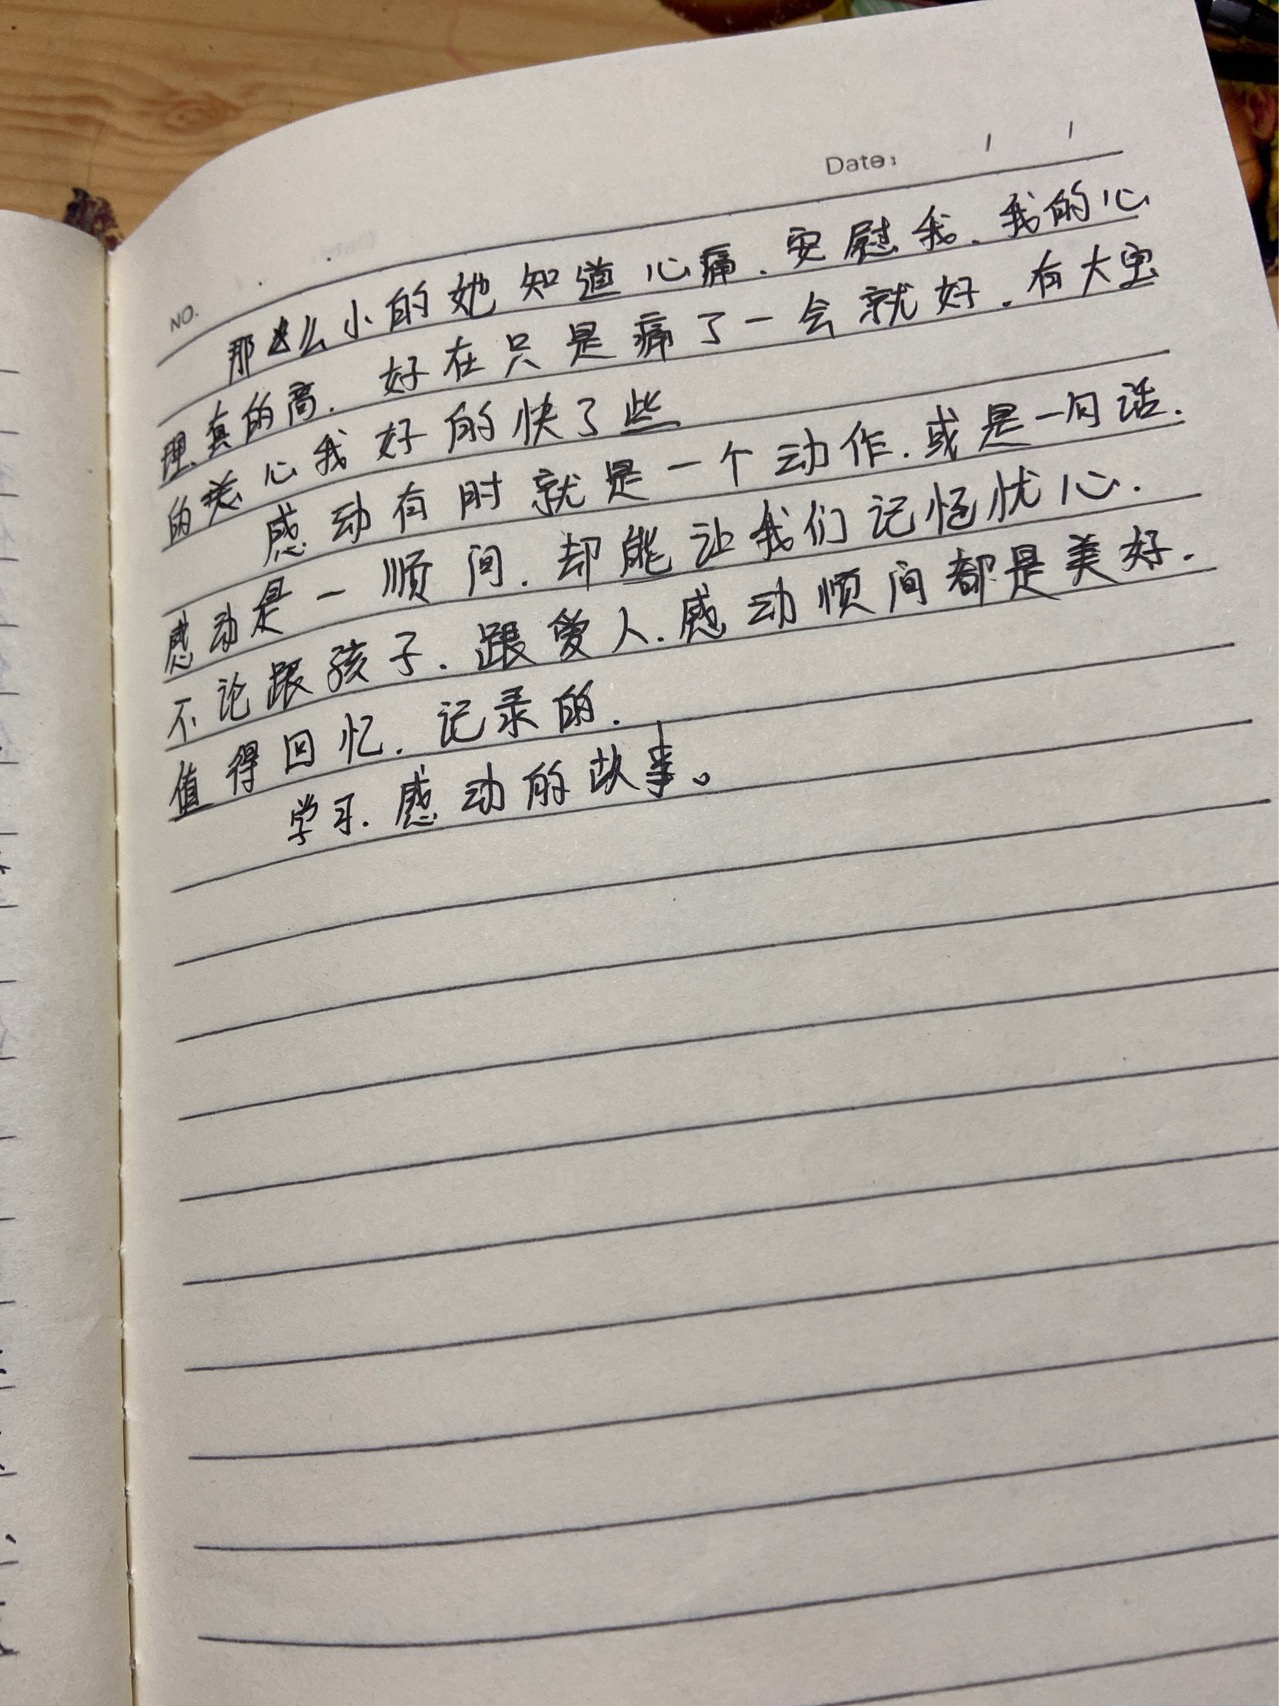 Date: / /
NO.
那么小的她知道心痛.安慰我.我的心
理真的高.好在只是痛了一会就好.有大宝
的关心我好的快了些
感动有时就是一个动作.或是一句话.
感动是一顺间.却能让我们记忆忧心.
不论跟孩子.跟爱人.感动顺间都是美好.
值得回忆.记录的.
学习.感动的故事。